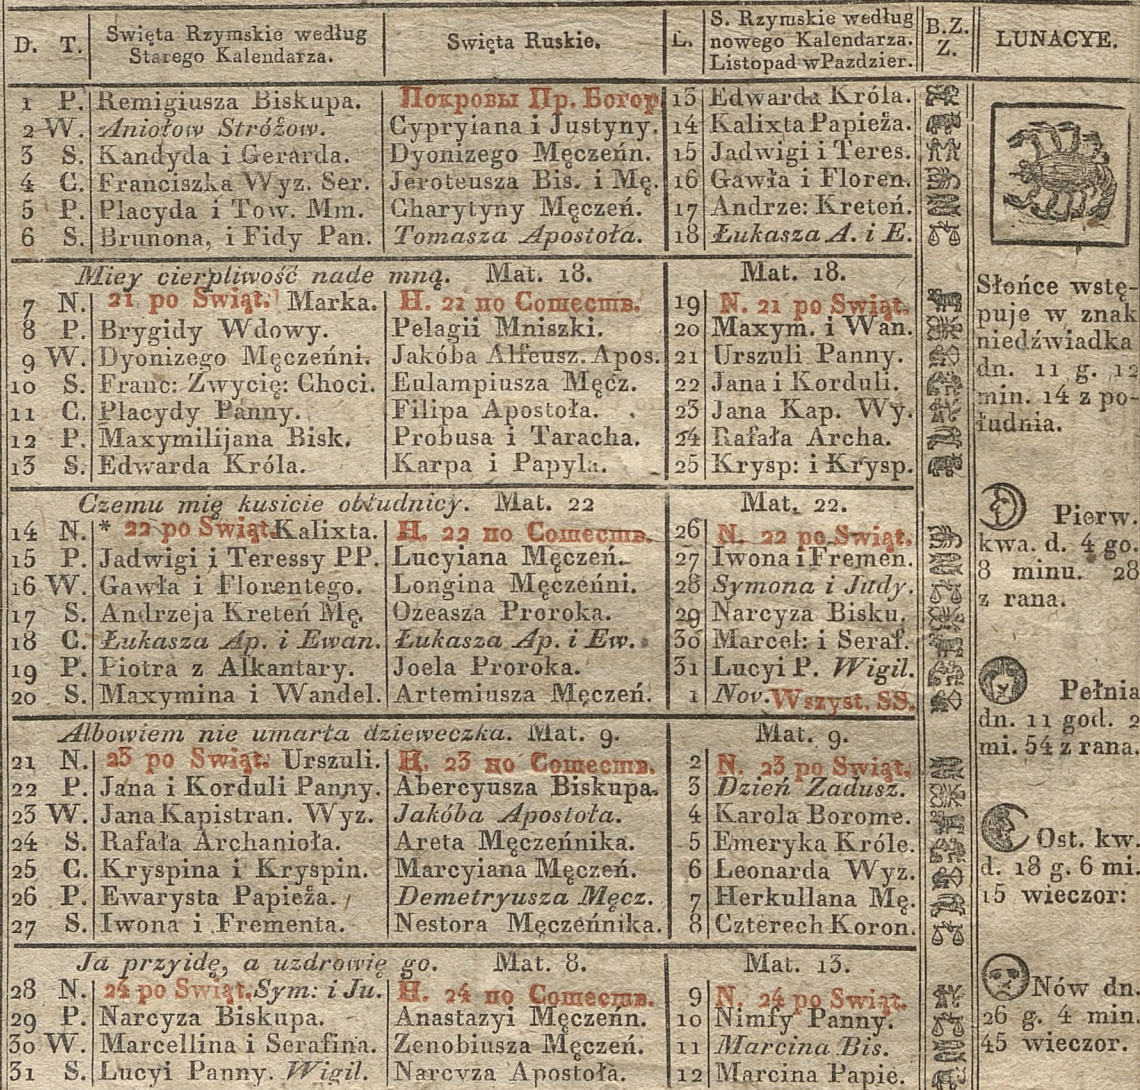 D. T. Swięta Rzymskie według Starego Kalendarza. Swięta Ruskie. L. S. Rzymskie według nowego Kalendarza. Listopad wPazdzier. B.Z. Z. LUNACYE.
1 P. Remigiusza Biskupa. Покровы Пр. Богор 13 Edwarda Króla.
2 W. Aniołow Stróżow. Cypryiana i Justyny. 14 Kalixta Papieża.
3 S. Kandyda i Gerarda. Dyonizego Męczeńn. 15 Jadwigi i Teres.
4 C. Franciszka Wyz. Ser. Jeroteusza Bis. i Mę. 16 Gawła i Floren.
5 P. Placyda i Tow. Mm. Charytyny Męczeń. 17 Andrze: Kreteń.
6 S. Brunona, i Fidy Pan. Tomasza Apostoła. 18 Łukasza A. i E.
Miey cierpliwość nade mną. Mat. 18. Mat. 18.
7 N. 21 po Swiąt. Marka. Н. 21 по Сошеств. 19 N. 21 po Swiąt.
8 P. Brygidy Wdowy. Pelagii Mniszki. 20 Maxym. i Wan.
9 W. Dyonizego Męczeńni. Jakóba Alfeusz. Apos. 21 Urszuli Panny.
10 S. Franc: Zwycię: Choci. Eulampiusza Męcz. 22 Jana i Korduli.
11 C. Płacydy Panny. Filipa Apostoła. 23 Jana Kap. Wy.
12 P. Maxymilijana Bisk. Probusa i Taracha. 24 Rafała Archa.
13 S. Edwarda Króla. Karpa i Papyla. 25 Krysp: i Krysp.
Czemu mię kusicie obłudnicy. Mat. 22 Mat. 22.
14 N. * 22 po Swiąt. Kalixta. Н. 22 по Сошеств. 26 N. 22 po Swiąt.
15 P. Jadwigi i Teressy PP. Lucyiana Męczeń. 27 Iwona i Fremen.
16 W. Gawła i Florentego. Longina Męczeńni. 28 Symona i Judy.
17 S. Andrzeja Kreteń Mę. Ozeasza Proroka. 29 Narcyza Bisku.
18 C. Łukasza Ap. i Ewan. Łukasza Ap. i Ew. 30 Marcel: i Seraf.
19 P. Piotra z Alkantary. Joela Proroka. 31 Lucyi P. Wigil.
20 S. Maxymina i Wandel. Artemiusza Męczeń. 1 Nov. Wszyst. SS.
Albowiem nie umarła dzieweczka. Mat. 9. Mat. 9.
21 N. 23 po Swiąt. Urszuli. Н. 23 по Сошеств. 2 N. 23 po Swiąt.
22 P. Jana i Korduli Panny. Abercyusza Biskupa. 3 Dzień Zadusz.
23 W. Jana Kapistran. Wyz. Jakóba Apostoła. 4 Karola Borome.
24 S. Rafała Archanioła. Areta Męczeńnika. 5 Emeryka Króle.
25 C. Kryspina i Kryspin. Marcyiana Męczeń. 6 Leonarda Wyz.
26 P. Ewarysta Papieża. Demetryusza Męcz. 7 Herkullana Mę.
27 S. Iwona i Frementa. Nestora Męczeńnika. 8 Czterech Koron.
Ja przyidę, a uzdrowię go. Mat. 8. Mat. 13.
28 N. 24 po Swiąt. Sym: i Ju. Н. 24 по Сошеств. 9 N. 24 po Swiąt.
29 P. Narcyza Biskupa. Anastazyi Męczeńn. 10 Nimfy Panny.
30 W. Marcellina i Serafina. Zenobiusza Męczeń. 11 Marcina Bis.
31 S. Lucyi Panny. Wigil. Narcyza Apostoła. 12 Marcina Papie.
Słońce wstę-
puje w znak
niedźwiadka
dn. 11 g. 12
min. 14 z po-
łudnia.
Pierw.
kwa. d. 4 go.
8 minu. 28
z rana.
Pełnia
dn. 11 god. 2
mi. 54 z rana.
Ost. kw.
d. 18 g. 6 mi.
15 wieczor:
Nów dn.
26 g. 4 min.
45 wieczor.